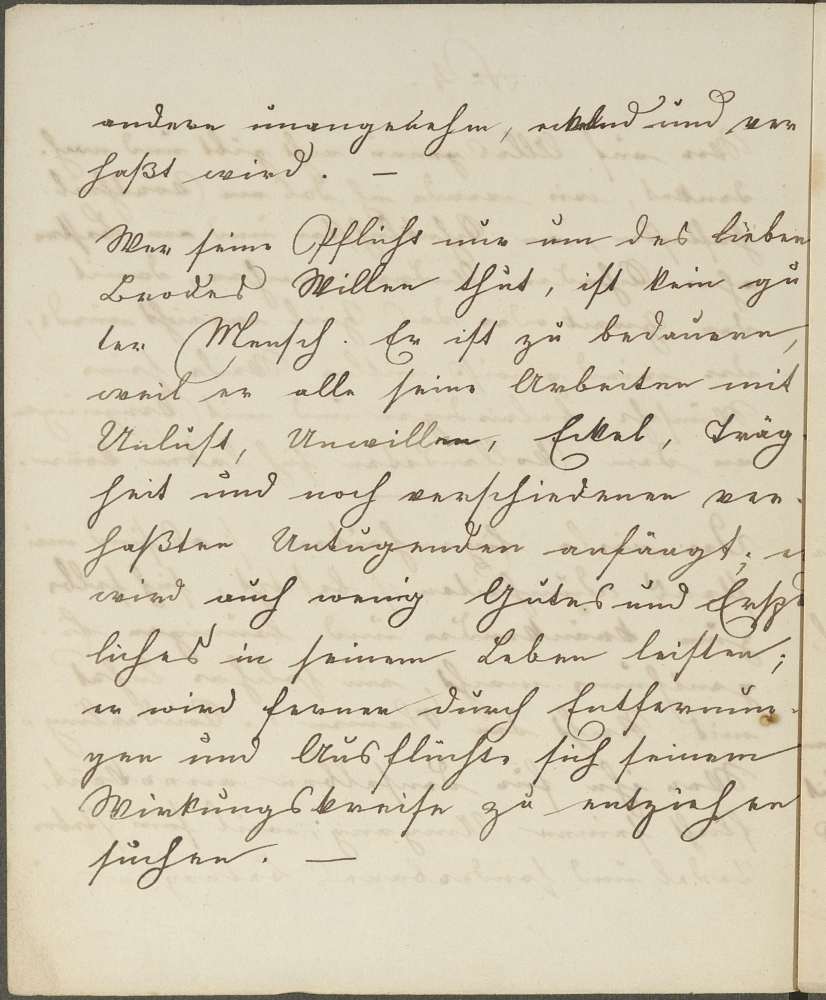 andern unangenehm, eckelnd und ver
haßt wird. —
Wer seine Pflicht nur um des lieben
Brodes Willen thut, ist kein gu
ter Mensch. Er ist zu bedauern,
weil er alle seine Arbeiten mit
Unlust, Unwillen, Eckel, Träg
heit und noch verschiedenen ver-
haßten Untugenden anfängt; e
wird auch wenig Gutes und Ersp
liches in seinem Leben leisten;
er wird ferner durch Entfernun-
gen und Ausflüchte sich seinem
Wirkungskreise zu entziehen
suchen. —